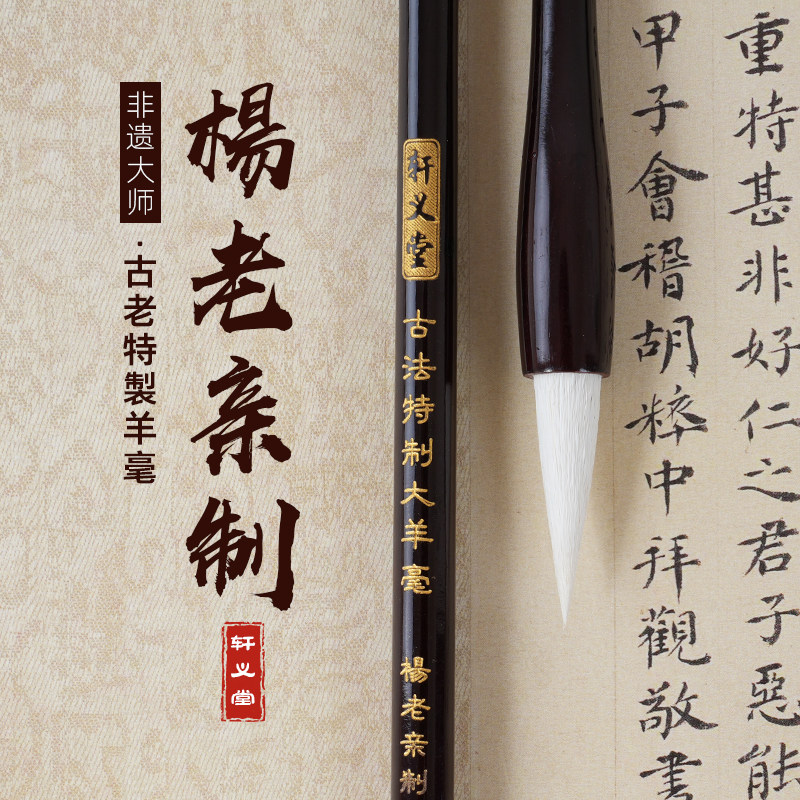 非遗大师
·古老特製羊毫
楊老亲制
轩义堂
轩义堂
古法特制大羊毫
楊老亲制
重特甚非好仁之君子惡能
甲子會稽胡粹中拜觀敬書